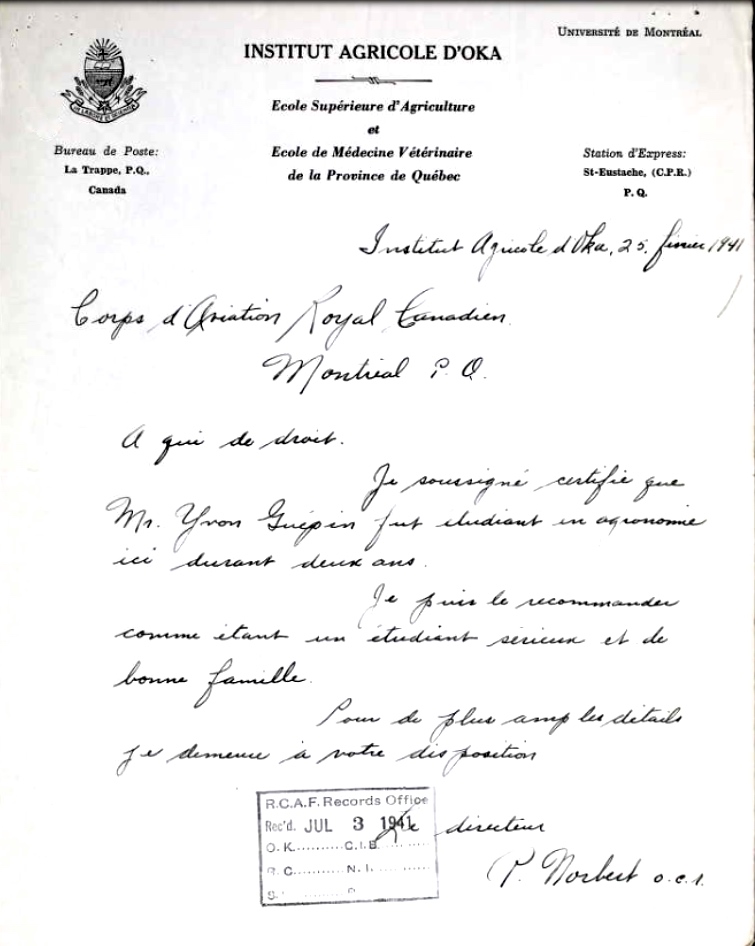 UNIVERSITÉ DE MONTRÉAL
INSTITUT AGRICOLE D'OKA
Ecole Supérieure d'Agriculture
et
Ecole de Médecine Vétérinaire
de la Province de Québec
Bureau de Poste:
La Trappe, P.Q.,
Canada
Station d'Express:
St-Eustache, (C.P.R.)
P. Q.
Institut Agricole d'Oka, 25. février 1941
Corps d'Aviation Royal Canadien
Montréal P. Q.
A qui de droit.
Je soussigné certifie que
Mr. Yvon Guépin fut étudiant en agronomie
ici durant deux ans.
Je puis le recommander
comme étant un étudiant sérieux et de
bonne famille.
Pour de plus amples détails
je demeure à votre disposition
Le directeur
P. Norbert o.c.r.
R.C.A.F. Records Office
Rec'd. JUL 3 1941
O.K. C.I.B.
R.C. N.I.
S.